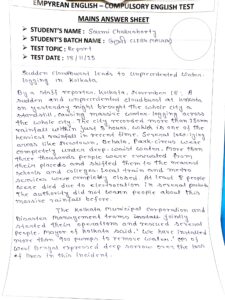 EMPYREAN ENGLISH - COMPULSORY ENGLISH TEST
MAINS ANSWER SHEET
➤ STUDENT'S NAME : Soumi Chakraborty
➤ STUDENT'S BATCH NAME :
➤ TEST TOPIC : Report
➤ TEST DATE : 15/11/23
Sudden Cloudburst leads to Unprecedented Water-
logging in Kolkata
By a staff reporter, Kolkata, November 15 : A
sudden and unprecedented cloudburst at Kolkata
on yesterday night brought the whole city a
standstill, causing massive water logging across
the whole city. The city recorded more than
rainfall within just 3 hours, which is one of the
heaviest rainfall in recent time. Several low lying
areas like Behala, Park Circus were
completely under deep water. More than
three thousands people were evacuated from
their places and shifted them to the nearest
schools and colleges. Local train and metro
services were completely closed. At least 8 people
were died due to electrocution in several parts.
The authority did not warn people about this
massive rainfall before.
The Kolkata Municipal Corporation and
Disaster Management teams jointly
started their operations and rescued several
people. Mayor of Kolkata said, "We have installed
more than 90 pumps to remove water." CM of
West Bengal expressed deep sorrow over the loss
of lives in this incident.